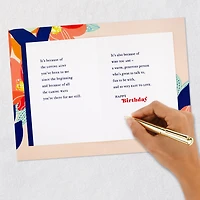 It's because of
the caring aunt
you've been to me
since the beginning
and because of all
the caring ways
you're there for me still.
It's also because of
who you are –
a warm, generous person
who's great to talk to,
fun to be with,
and so very easy to love.
HAPPY
Birthday